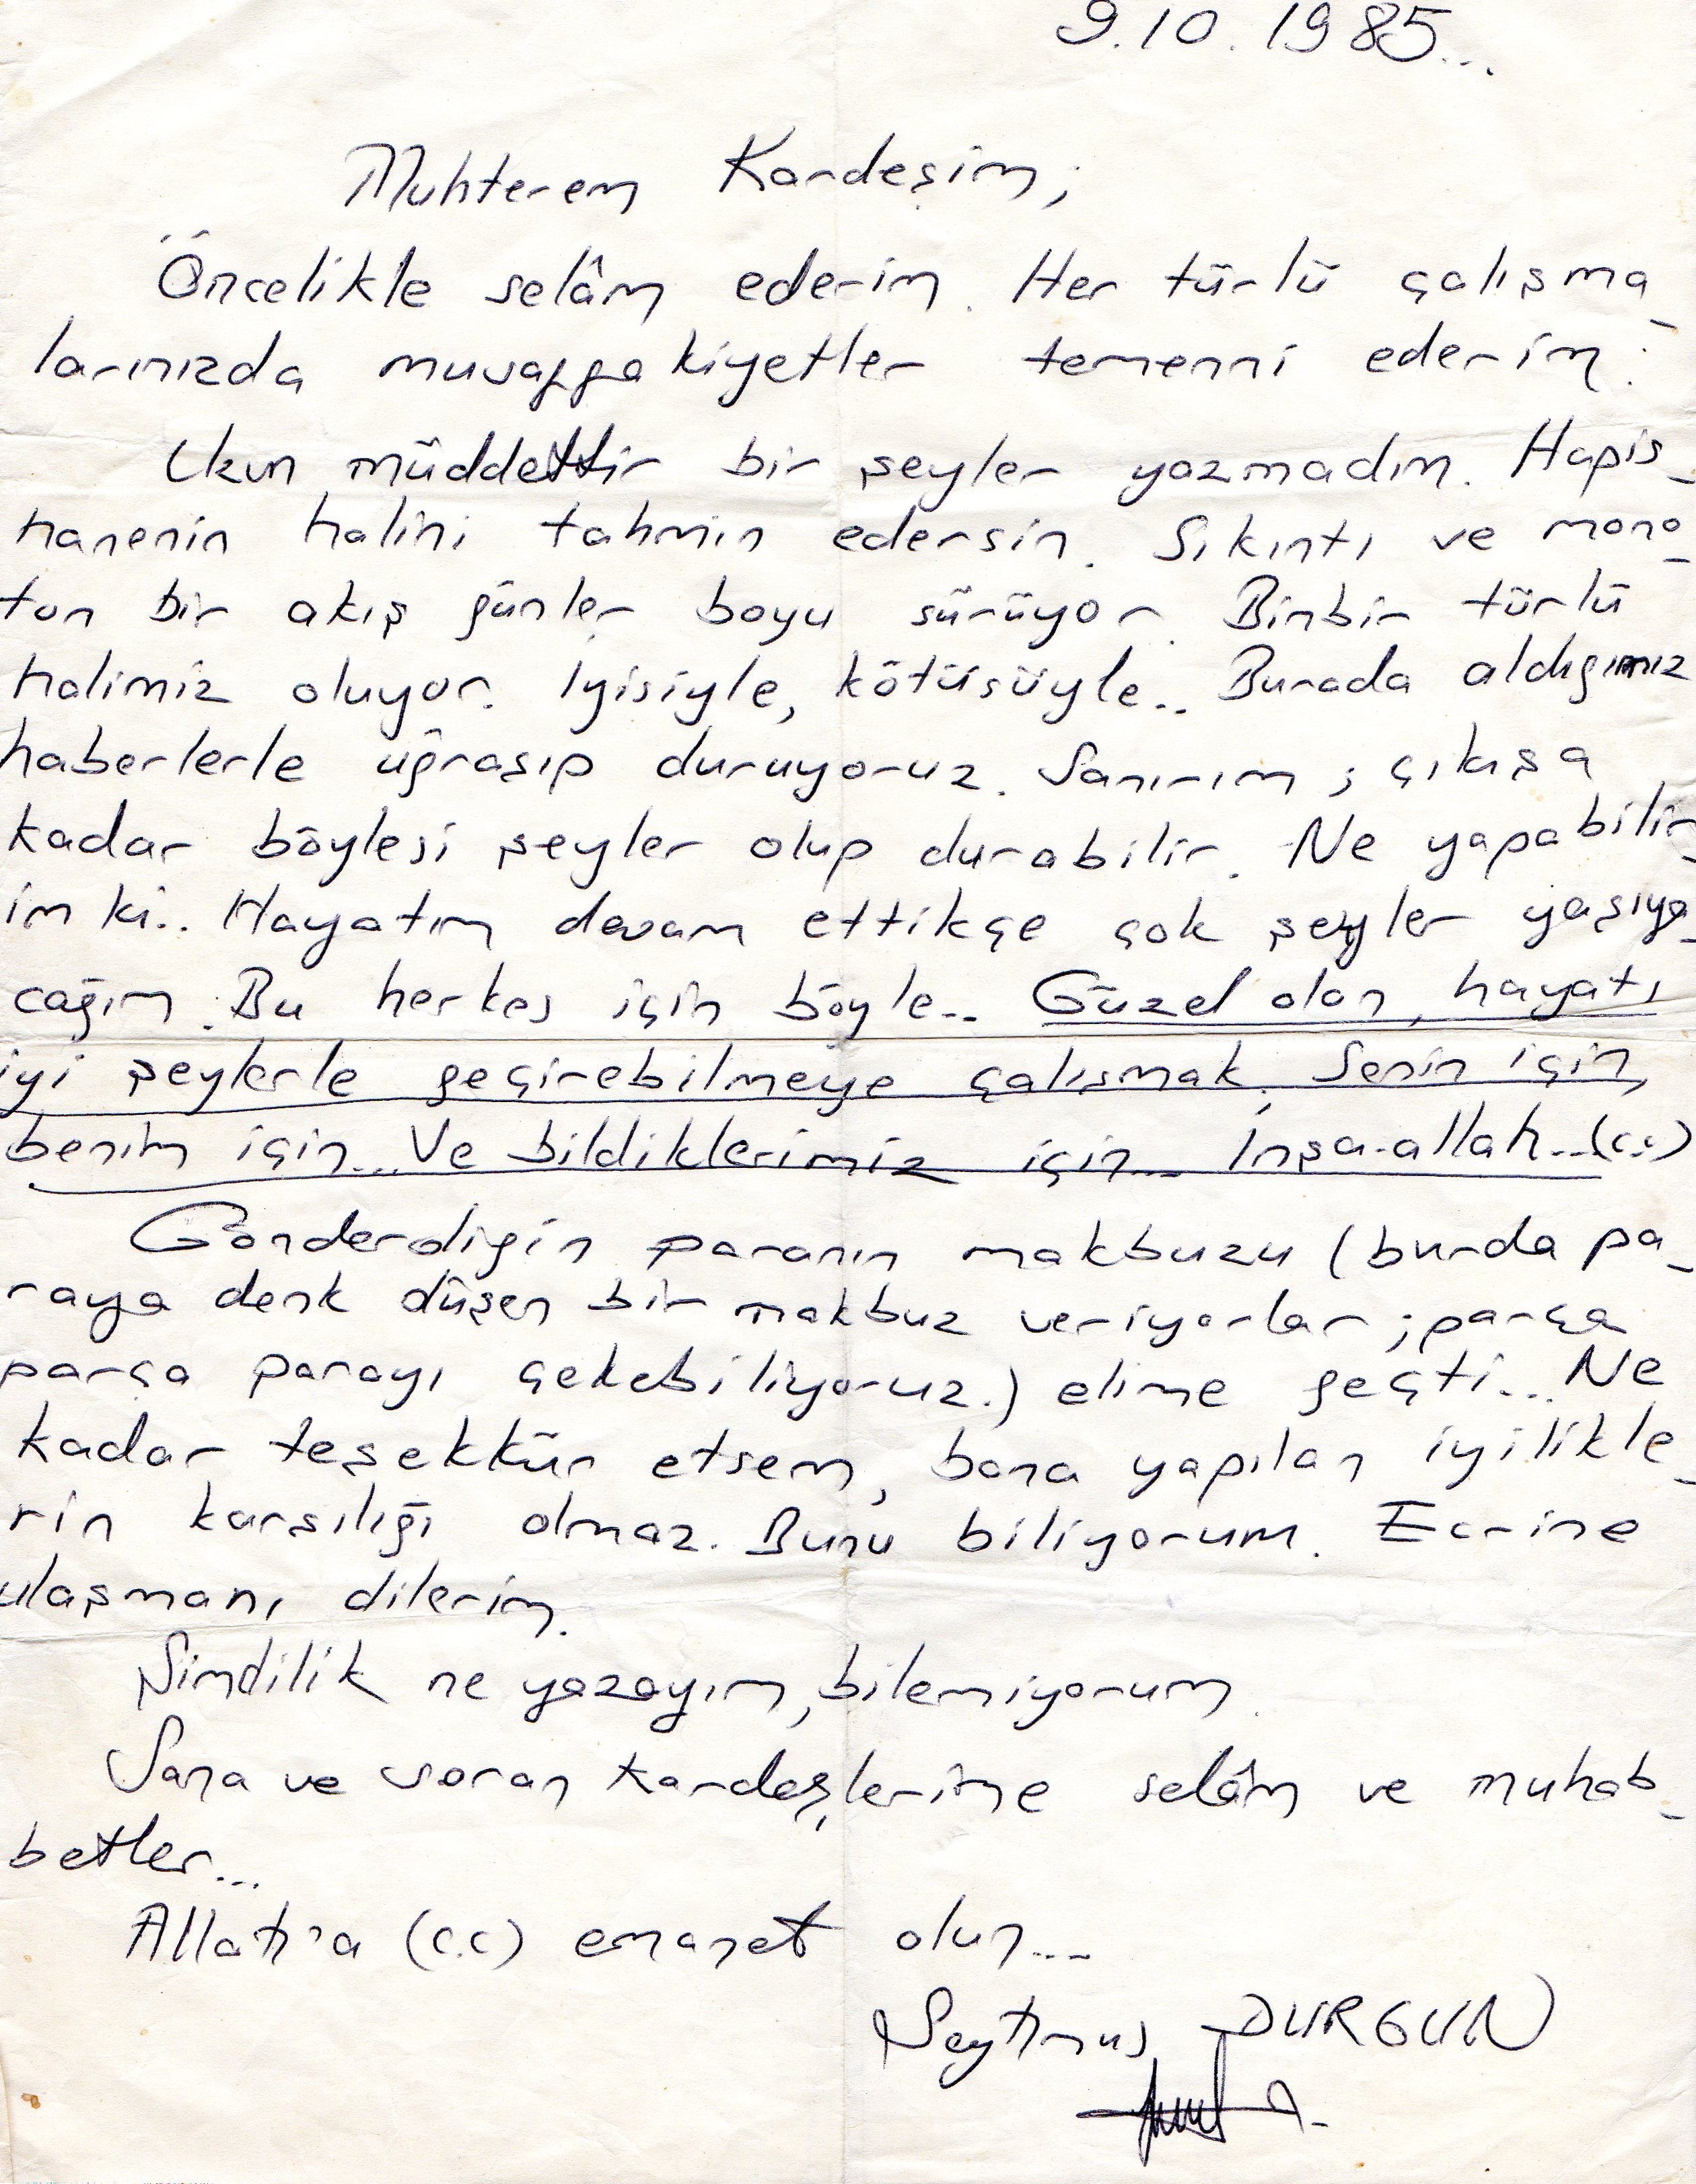 9.10.1985...
Muhterem Kardeşim;
Öncelikle selâm ederim. Her türlü çalışma-
larınızda muvaffakiyetler temenni ederim.
Uzun müddettir bir şeyler yazmadım. Hapis-
hanenin halini tahmin edersin. Sıkıntı ve mono-
ton bir akış günler boyu sürüyor. Binbir türlü
halimiz oluyor. İyisiyle, kötüsüyle.. Burada aldığımız
haberlerle uğraşıp duruyoruz. Sanırım; çıkışa
kadar böylesi şeyler olup durabilir. Ne yapabilir-
im ki.. Hayatım devam ettikçe çok şeyler yaşıya-
cağım. Bu herkes için böyle.. Güzel olan, hayatı
iyi şeylerle geçirebilmeye çalışmak. Senin için,
benim için... Ve bildiklerimiz için... İnşa-allah...(c.c)
Gönderdiğin paranın makbuzu (burda pa-
raya denk düşen bir makbuz veriyorlar; parça
parça parayı çekebiliyoruz.) elime geçti... Ne
kadar teşekkür etsem, bana yapılan iyilikle-
rin karşılığı olmaz. Bunu biliyorum. Ecrine
ulaşmanı dilerim.
Şimdilik ne yazayım, bilemiyorum.
Sana ve soran kardeşlerime selâm ve muhab-
betler...
Allah'a (c.c) emanet olun...
Şeyhmus DURGUN